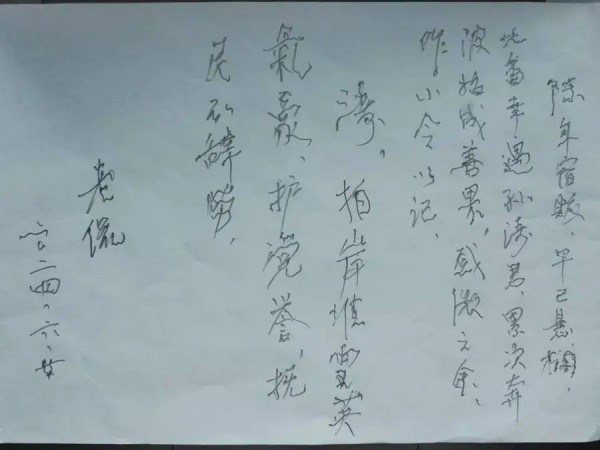 陈年宿账、早已悬搁,
此番幸遇孙涛君,累次奔
波始成善果。感激之余、
作小令以记、
涛。拍岸堆雪英
气豪、护党誉,挽
民不辞劳,
老侃
二〇二四、六、廿